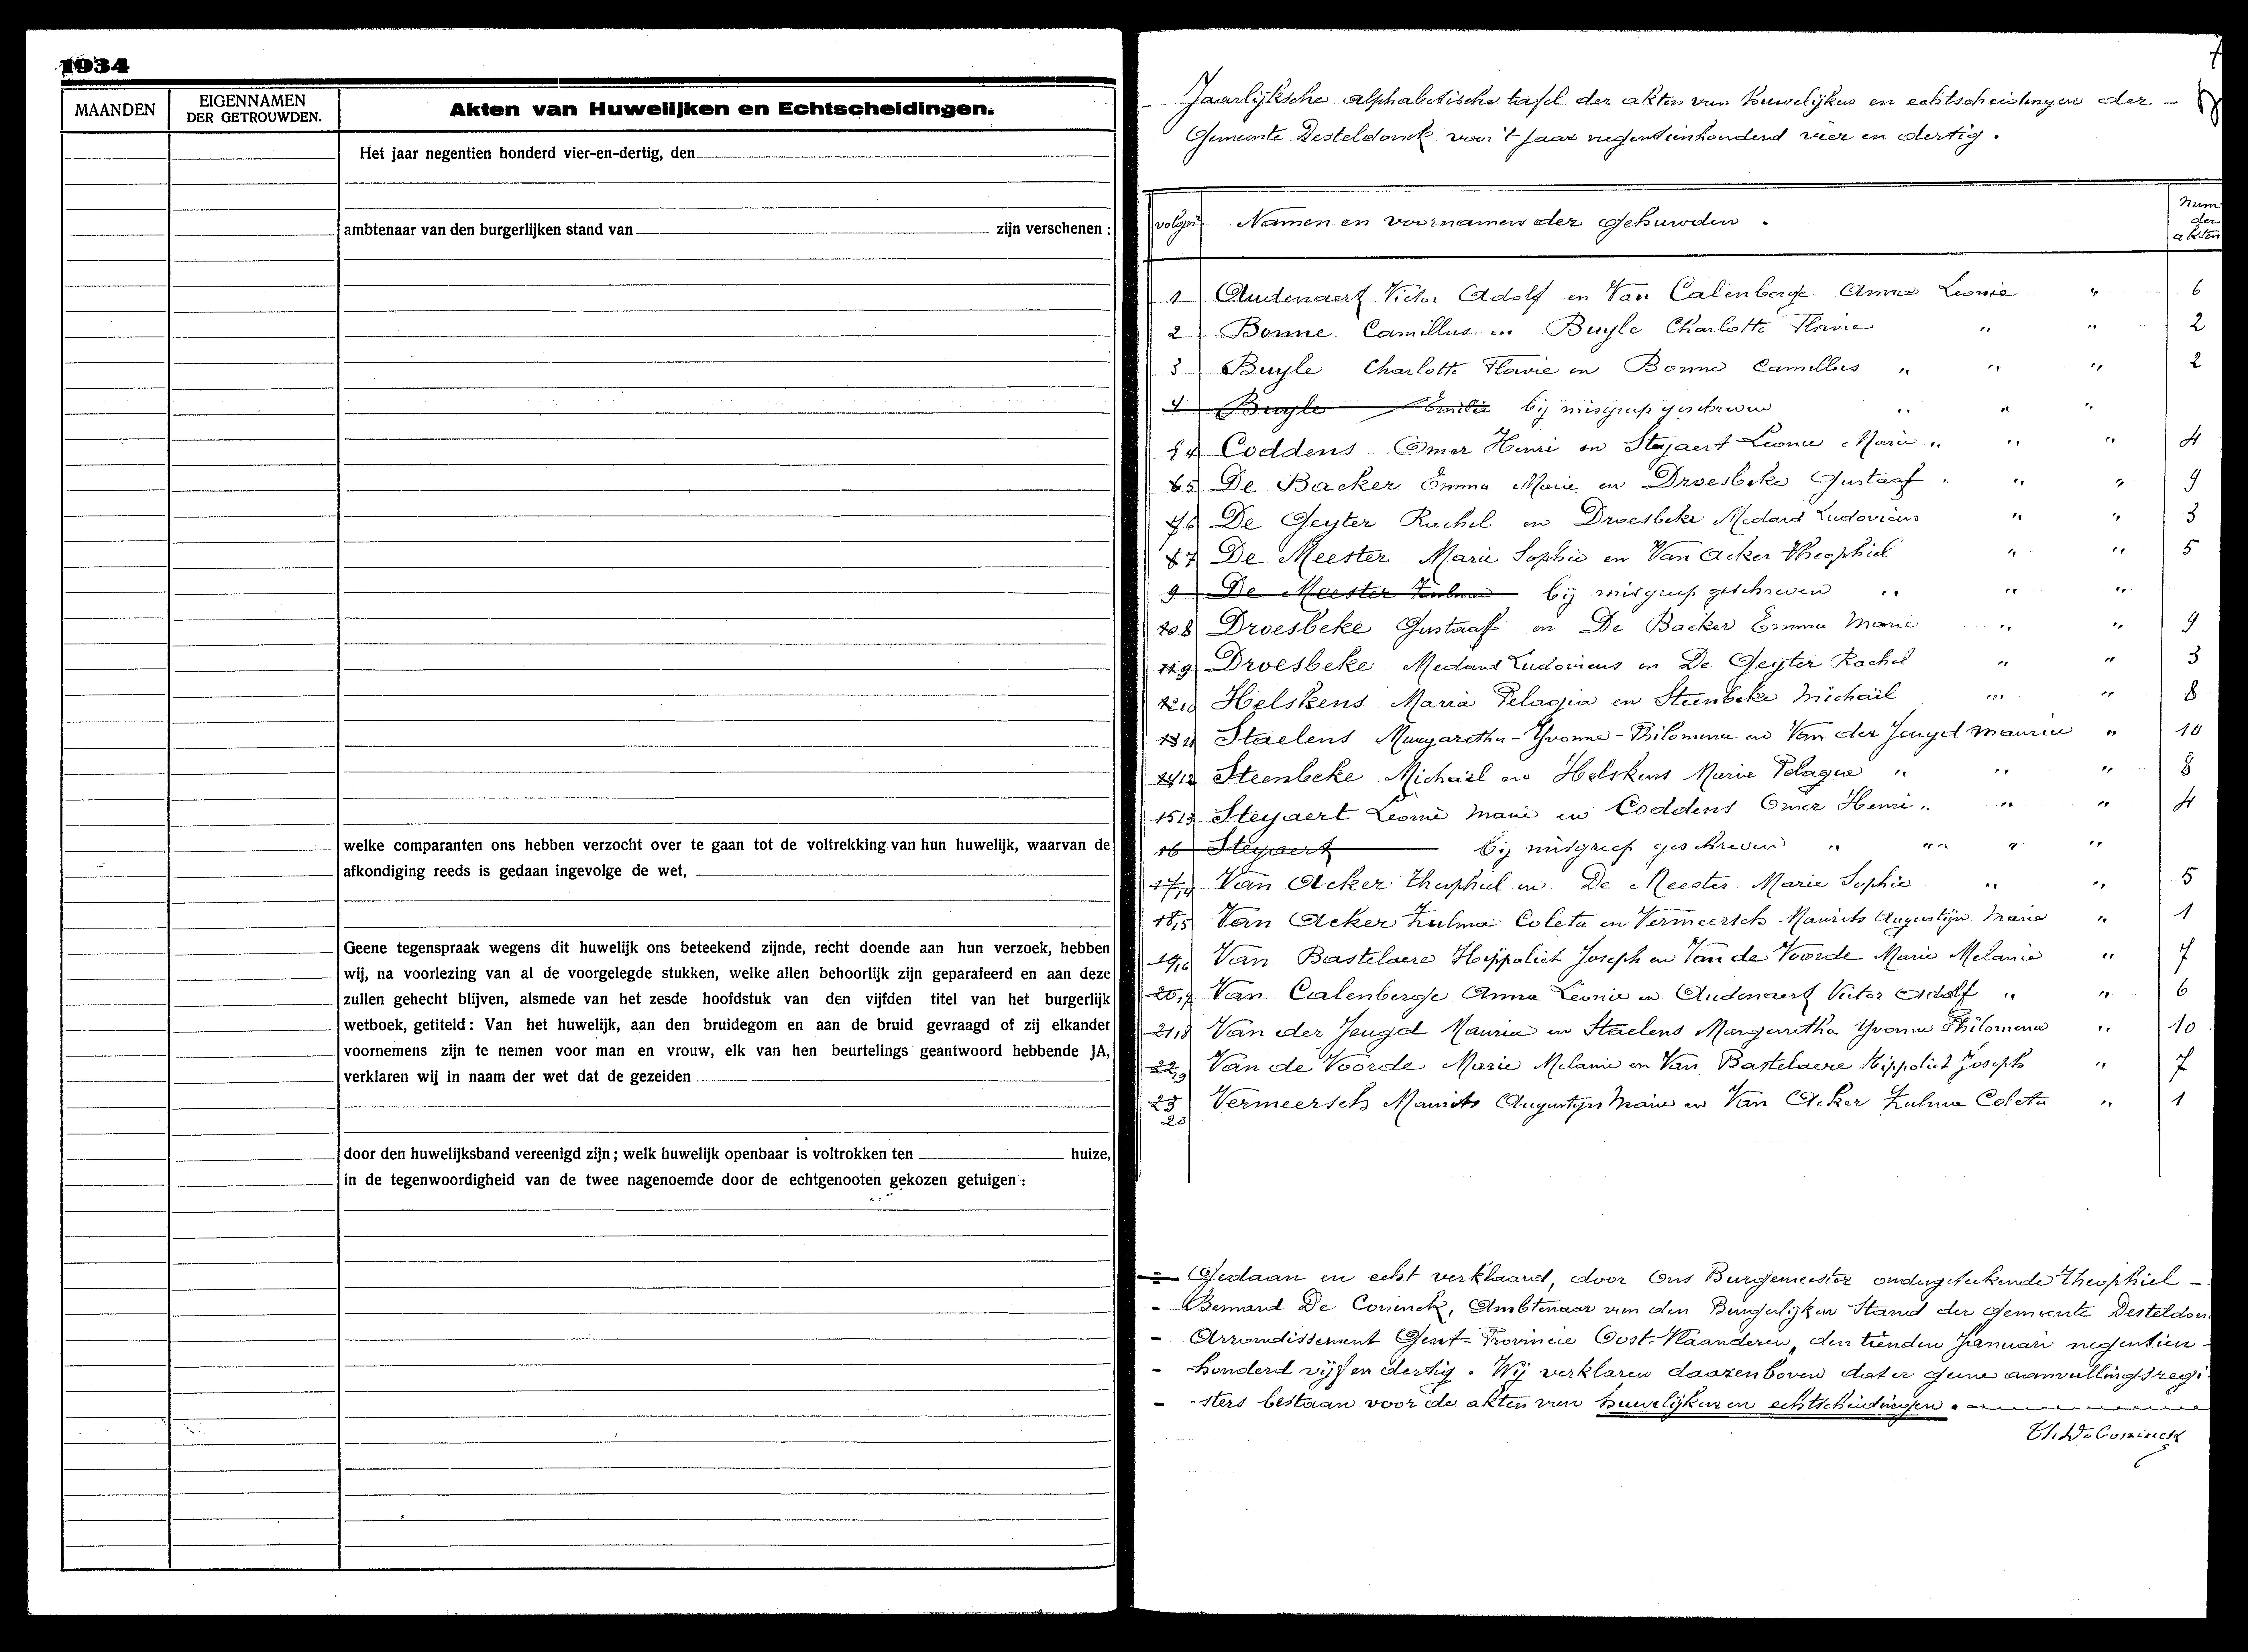 1934
MAANDEN
EIGENNAMEN
DER GETROUWDEN.
Akten van Huwelijken en Echtscheidingen.
Het jaar negentien honderd vier-en-dertig, den
ambtenaar van den burgerlijken stand van zijn verschenen :
welke comparanten ons hebben verzocht over te gaan tot de voltrekking van hun huwelijk, waarvan de
afkondiging reeds is gedaan ingevolge de wet,
Geene tegenspraak wegens dit huwelijk ons beteekend zijnde, recht doende aan hun verzoek, hebben
wij, na voorlezing van al de voorgelegde stukken, welke allen behoorlijk zijn geparafeerd en aan deze
zullen gehecht blijven, alsmede van het zesde hoofdstuk van den vijfden titel van het burgerlijk
wetboek, getiteld : Van het huwelijk, aan den bruidegom en aan de bruid gevraagd of zij elkander
voornemens zijn te nemen voor man en vrouw, elk van hen beurtelings geantwoord hebbende JA,
verklaren wij in naam der wet dat de gezeiden
door den huwelijksband vereenigd zijn ; welk huwelijk openbaar is voltrokken ten huize,
in de tegenwoordigheid van de twee nagenoemde door de echtgenooten gekozen getuigen :
Jaarlijksche alphabetische tafel der akten van huwelijken en echtscheidingen der -
Gemeente Desteldonck voor 't jaar negentienhonderd vier en dertig.
Namen en voornamen der gehuwden.
Num
der
akten
1 Audenaert Victor Adolf en Van Calenberge Anna Leonie " 6
2 Bonne Camillus en Buyle Charlotte Flavie " " 2
3 Buyle Charlotte Flavie en Bonne Camillus " " " 2
4 Buyle Emilie bij misgreep geschreven " " "
5 4 Coddens Omer Henri en Steyaert Leonie Marie " " " 4
6 5 De Backer Emma Marie en Droesbeke Gustaaf " " " 9
7 6 De Geyter Rachel en Droesbeke Medard Ludovicus " " 3
8 7 De Meester Marie Sophie en Van Acker Theophiel " " 5
9 De Meester Zulma bij misgreep geschreven " " "
10 8 Droesbeke Gustaaf en De Backer Emma Marie " " 9
11 9 Droesbeke Medard Ludovicus en De Geyter Rachel " " 3
12 10 Helskens Maria Pelagia en Steenbeke Michaël " " 8
13 11 Staelens Margaretha-Yvonne-Philomena en Van der Jeugd Maurice " 10
14 12 Steenbeke Michaël en Helskens Marie Pelagie " " " 8
15 13 Steyaert Leonie Marie en Coddens Omer Henri " " " 4
16 Steyaert bij misgreep geschreven " " " "
17 14 Van Acker Theophiel en De Meester Marie Sophie " " 5
18 15 Van Acker Zulma Coleta en Vermeersch Maurits Augustijn Marie " 1
19 16 Van Bastelaere Hippoliet Joseph en Van de Voorde Marie Melanie " 7
20 17 Van Calenberge Anna Leonie en Audenaert Victor Adolf " " 6
21 18 Van der Jeugd Maurice en Staelens Margaretha Yvonne Philomena " 10
22 19 Van de Voorde Marie Melanie en Van Bastelaere Hippoliet Joseph " 7
23 20 Vermeersch Maurits Augustijn Marie en Van Acker Zulma Coleta " 1
Gedaan en echt verklaard, door Ons Burgemeester ondergeteekende Theophiel -
- Bernard De Coninck, Ambtenaar van den Burgerlijken Stand der Gemeente Desteldon
- Arrondissement Gent - Provincie Oost-Vlaanderen, den tienden Januari negentien -
- honderd vijf en dertig. Wij verklaren daarenboven dat er geene aanvullingsregi
- -sters bestaan voor de akten van huwelijken en echtscheidingen.
Th. De Coninck